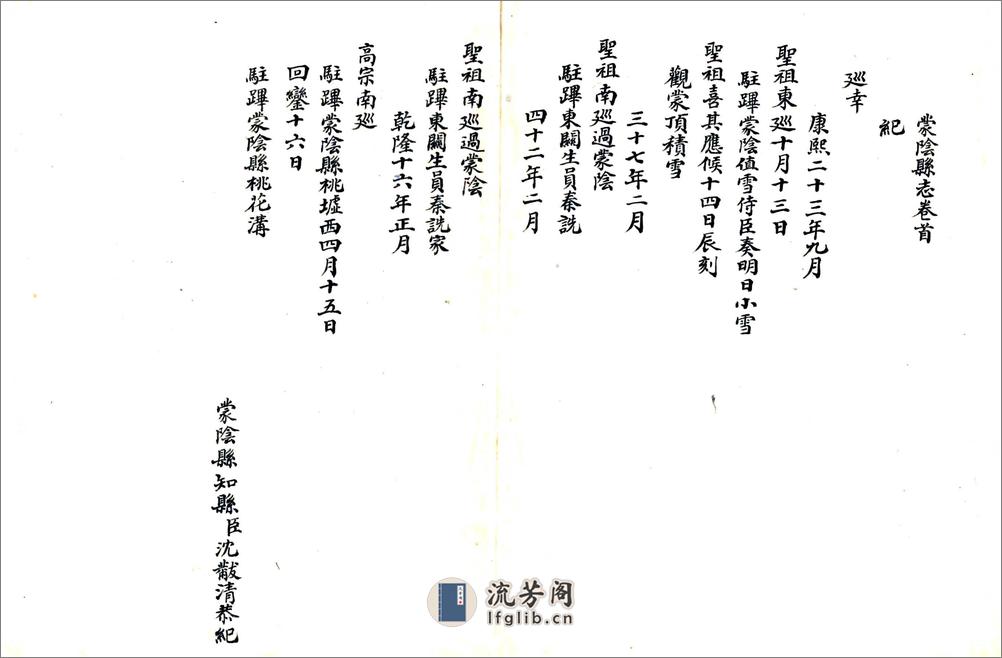 蒙陰縣志卷首
紀
巡幸
康熙二十三年九月
聖祖東巡十月十三日
駐蹕蒙陰值雪侍臣奏明日小雪
聖祖喜其應候十四日辰刻
觀蒙頂積雪
三十七年二月
聖祖南巡過蒙陰
駐蹕東關生員秦詵
四十二年二月
聖祖南巡過蒙陰
駐蹕東關生員秦詵家
乾隆十六年正月
高宗南巡
駐蹕蒙陰縣桃墟西四月十五日
回鑾十六日
駐蹕蒙陰縣桃花溝
蒙陰縣知縣臣沈黻清恭紀
流芳阁
lfglib.cn